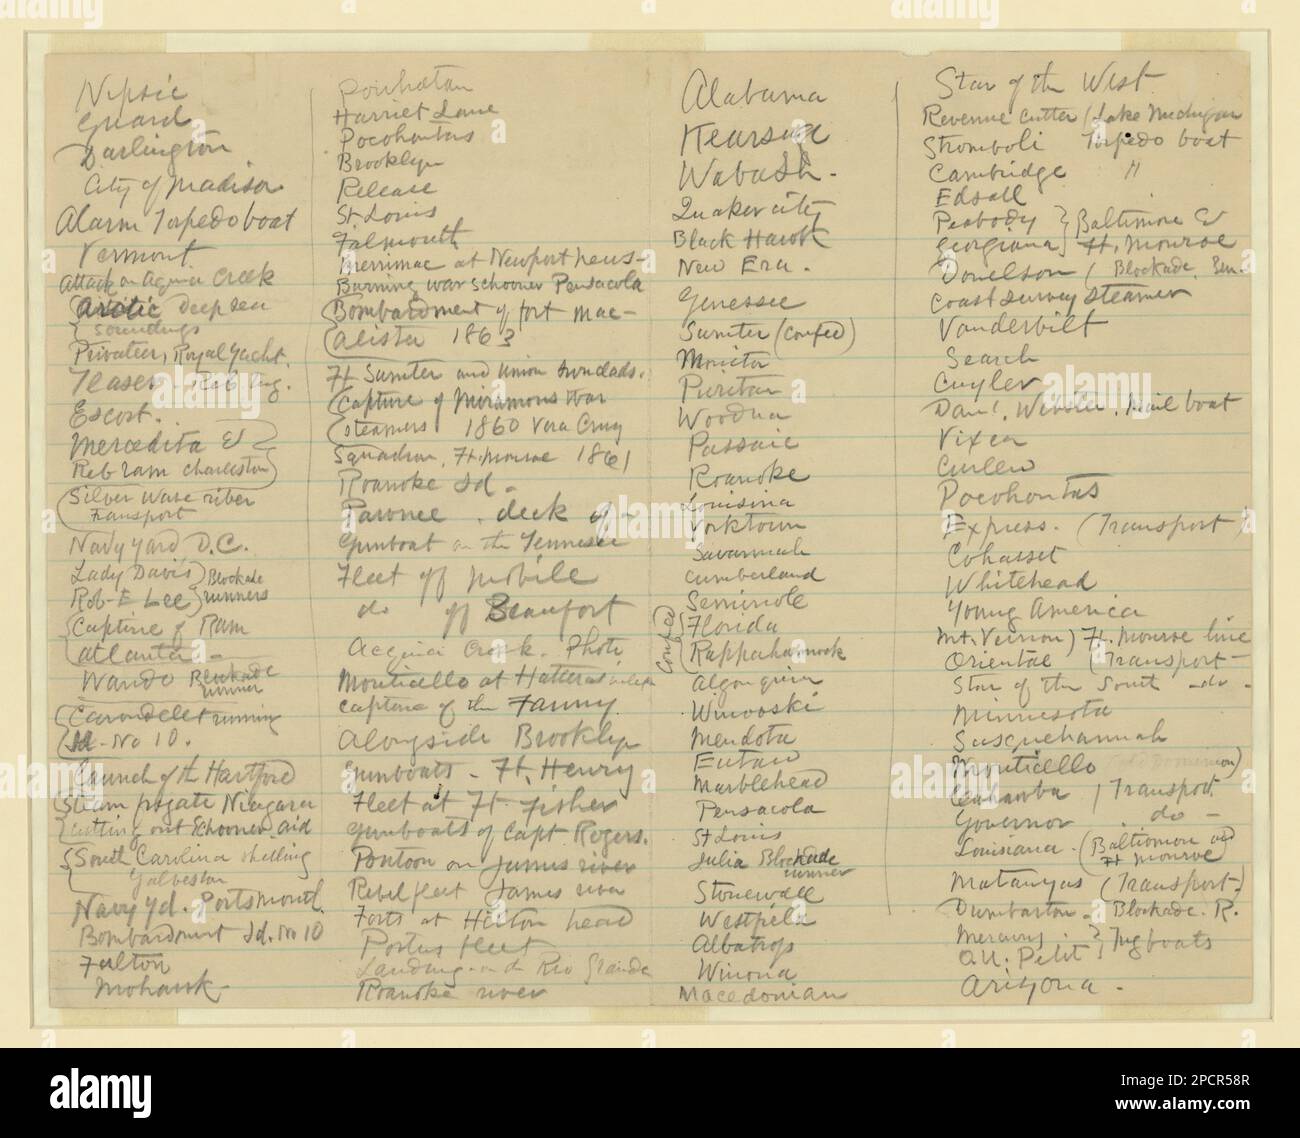 Nipsic
Guard
Darlington
City of Madison
Alarm Torpedo boat
Vermont
Attack on Aquia Creek
Arctic Deep sea
soundings
Privateer, Royal Yacht.
Teaser - Reb tug.
Escort.
Mercedita &
Reb ram Charleston
Silver Wave river
Transport
Navy yard D.C.
Lady Davis } Blockade
Rob- E Lee } runners
Capture of Ram
Atlanta -
Wando Blockade
runner
Carondelet running
Id - No 10.
Launch of the Hartford
Steam frigate Niagara
Cutting out Schooner aid
South Carolina shelling
Galveston
Navy yd. Portsmouth.
Bombardment Id. No 10
Fulton
Mohawk -
Powhatan
Harriet Lane
Pocohontas
Brooklyn
Release
St Louis
Falmouth
Merrimac at Newport news -
Burning war schooner Pensacola
Bombardment of fort Mac-
Alister 1863
Ft Sumter and Union Ironclads.
Capture of Miramons war
steamers 1860 Vera Cruz
Squadron, Ft. Monroe 1861
Roanoke Id -
Pawnee . deck of -
Gunboat on the Tennessee
Fleet off Mobile
do off Beaufort
Acquia Creek. Photo
Monticello at Hatteras inlet
Capture of the Fanny.
Alongside Brooklyn
Gunboats - Ft. Henry
Fleet at Ft. Fisher
Gunboats of Capt Rogers.
Pontoon on James river
Rebel fleet James river
Forts at Hilton head
Portus fleet
Landing on the Rio Grande
Roanoke river
Alabama
Kearsage
Wabash.
Quaker city
Black Hawk
New Era.
Genessee
Sumter (Confed)
Monitor
Puritan
Woodna
Passaic
Roanoke
Louisina
Yorktown
Savannah
Cumberland
Seminole
Confed
Florida
Rappahannock
Algonquin
Winooski
Mendota
Eutaw
Marblehead
Pensacola
St Louis
Julia Blockade
runner
Stonewall
Westfield
Albatross
Winona
Macedonian
Star of the West
Revenue Cutter (Lake Michigan
Stromboli Torpedo boat
Cambridge "
Edsall
Peabody } Baltimore &
Georgiana } Ft. Monroe
Donelson ( Blockade. Run.
Coast survey steamer
Vanderbilt
Search
Cuyler
Danl. Webster. Mail boat
Vixen
Curlew
Pocohontas
Express. (Transport)
Cohasset
Whitehead
Young America
Mt. Vernon) Ft. Monroe line
Oriental (Transport -
Star of the South - do -
Minnesota
Susquehannah
Monticello (old Dominion)
Cahawba ( Transport
Governor . do -
Louisiana. (Baltimore and
Ft Monroe)
Matanzas (Transport.)
Dumbarton. Blockade. R.
Mercury } Tugboats
O.M. Petit
Arizona -
alamy
Image ID: 2PCR58R
www.alamy.com